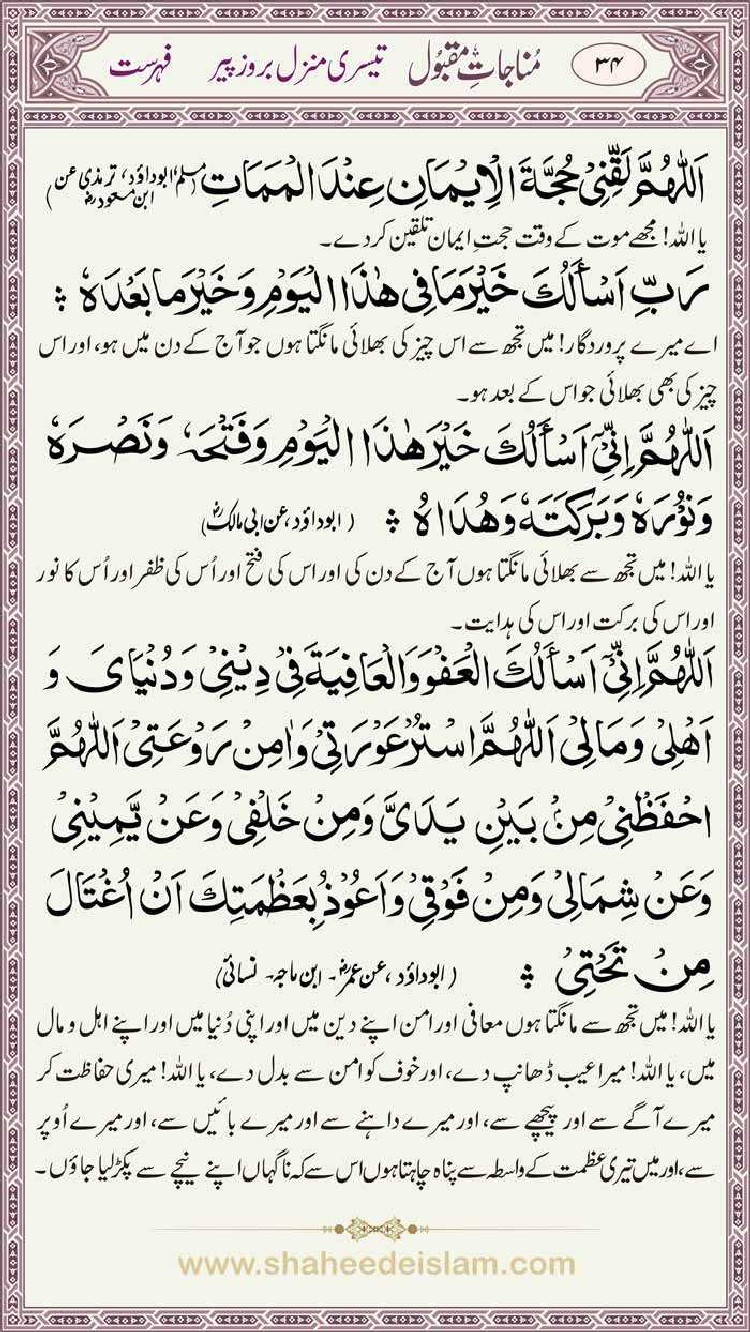 ۳۴ مُناجاتِ مقبُول تیسری منزل بروز پیر فہرست
اَللّٰهُمَّ لَقِّنِّیْ حُجَّةَ الْاِیْمَانِ عِنْدَ الْمَمَاتِ (مسلم، ابوداؤد، ترمذی عن ابن مسعودؓ)
یا اللہ! مجھے موت کے وقت حجتِ ایمان تلقین کر دے۔
رَبِّ اَسْأَلُكَ خَیْرَ مَا فِیْ هٰذَا الْیَوْمِ وَخَیْرَ مَا بَعْدَهٗ ؞
اے میرے پروردگار! میں تجھ سے اس چیز کی بھلائی مانگتا ہوں جو آج کے دن میں ہو، اور اس
چیز کی بھی بھلائی جو اس کے بعد ہو۔
اَللّٰهُمَّ اِنِّیْٓ اَسْأَلُكَ خَیْرَ هٰذَا الْیَوْمِ وَفَتْحَهٗ وَنَصْرَهٗ
وَنُوْرَهٗ وَبَرَكَتَهٗ وَهُدَاهُ ؞ (ابوداؤد، عن ابی مالکؓ)
یا اللہ! میں تجھ سے بھلائی مانگتا ہوں آج کے دن کی اور اس کی فتح اور اُس کی ظفر اور اُس کا نور
اور اس کی برکت اور اس کی ہدایت۔
اَللّٰهُمَّ اِنِّیْٓ اَسْأَلُكَ الْعَفْوَ وَالْعَافِیَةَ فِیْ دِیْنِیْ وَدُنْیَایَ وَ
اَهْلِیْ وَمَالِیْ اَللّٰهُمَّ اسْتُرْ عَوْرَتِیْ وَاٰمِنْ رَوْعَتِیْ اَللّٰهُمَّ
احْفَظْنِیْ مِنْۢ بَیْنِ یَدَیَّ وَمِنْ خَلْفِیْ وَعَنْ یَّمِیْنِیْ
وَعَنْ شِمَالِیْ وَمِنْ فَوْقِیْ وَاَعُوْذُ بِعَظَمَتِكَ اَنْ اُغْتَالَ
مِنْ تَحْتِیْ ؞ (ابوداؤد، عن عمرؓ۔ ابن ماجہ۔ نسائیؒ)
یا اللہ! میں تجھ سے مانگتا ہوں معافی اور امن اپنے دین میں اور اپنی دُنیا میں اور اپنے اہل و مال
میں، یا اللہ! میرا عیب ڈھانپ دے، اور خوف کو امن سے بدل دے، یا اللہ! میری حفاظت کر
میرے آگے سے اور پیچھے سے، اور میرے داہنے سے اور میرے بائیں سے، اور میرے اُوپر
سے، اور میں تیری عظمت کے واسطہ سے پناہ چاہتا ہوں اس سے کہ ناگہاں اپنے نیچے سے پکڑ لیا جاؤں۔
www.shaheedeislam.com